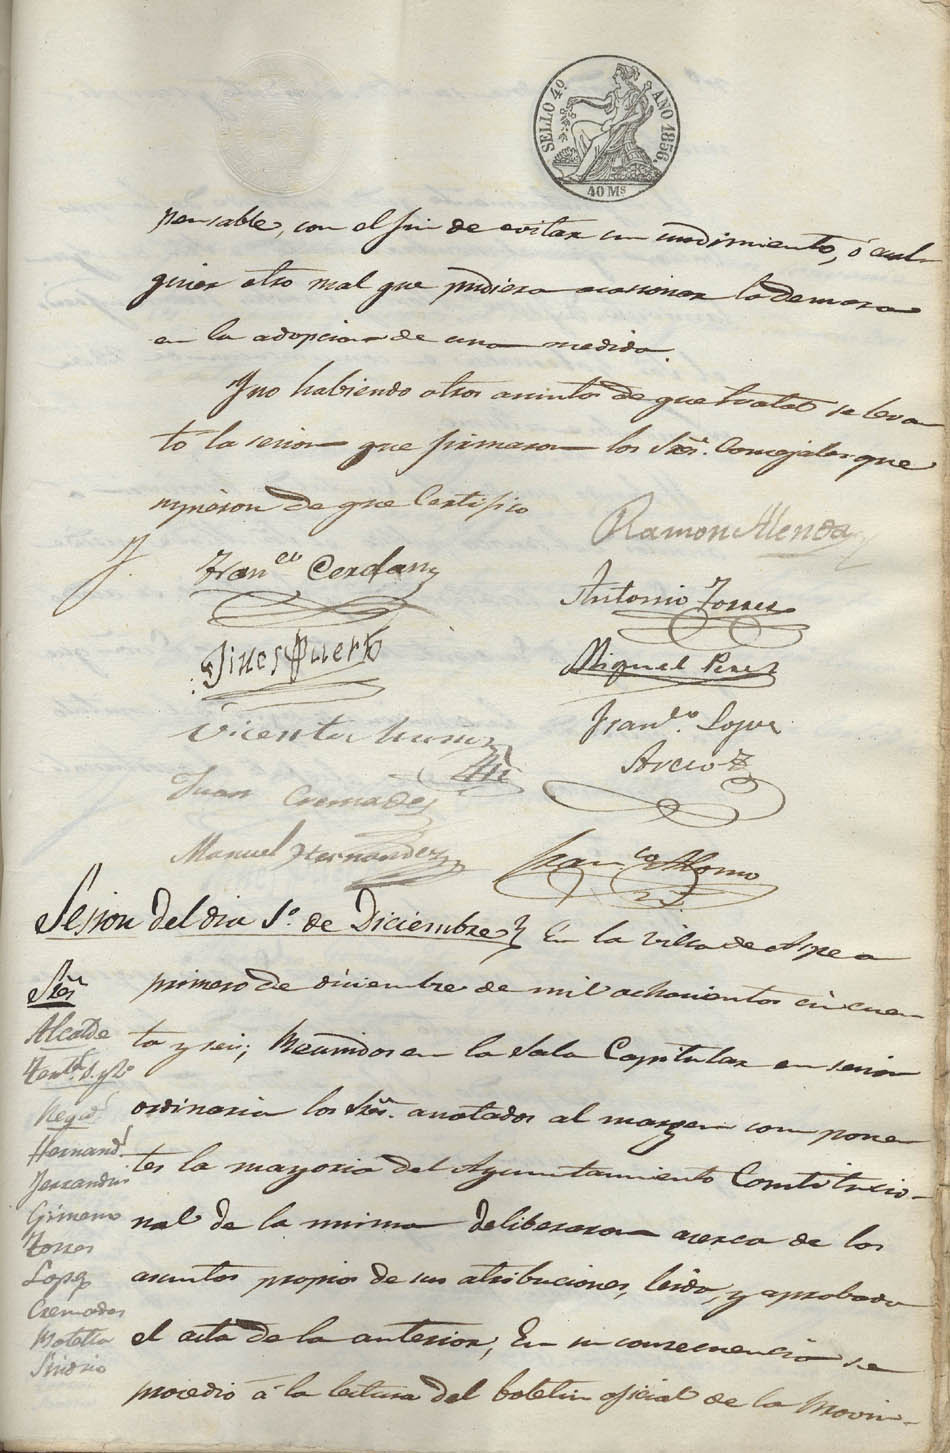 SELLO 4º AÑO 1856.
40 Ms
pensable, con el fin de evitar un undimiento, ó cual-
quier otro mal que pudiera ocasionar la demora
en la adopcion de una medida.
Y no habiendo otros asuntos de que tratar se levan
tó la sesion que firmaron los Sres. Concejales que
supieron de que Certifico
Ramon Alenda
Y.
Franco Cerdan
Antonio Torres
Gines Puerto
Miguel Perez
Vicente Muñoz
Franco Lopez
Juan Cremades
Manuel Hernandez
Sesion del dia 1º de Diciembre} En la villa de Aspe a
Sres
primero de diciembre de mil ochocientos cincuen
Alcalde
ta y seis; Reunidos en la Sala Capitular en sesion
Tente 1º y 2º
ordinaria los Sres. anotados al margen componen
Regid
Hernandz
tes la mayoria del Ayuntamiento Constitucio-
Ferrandiz
Gimeno
nal de la misma deliberaron acerca de los
Torres
Lopez
asuntos propios de sus atribuciones, leida, y aprobada
Cremades
Botella
el acta de la anterior, En su consecuencia se
Sindico
procedió á la lectura del boletin oficial de la Provin-